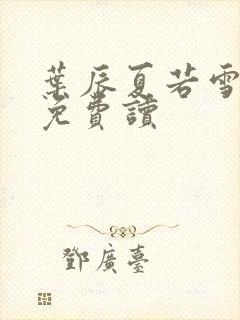 葉辰夏若雪
免費讀
鄧廣臺